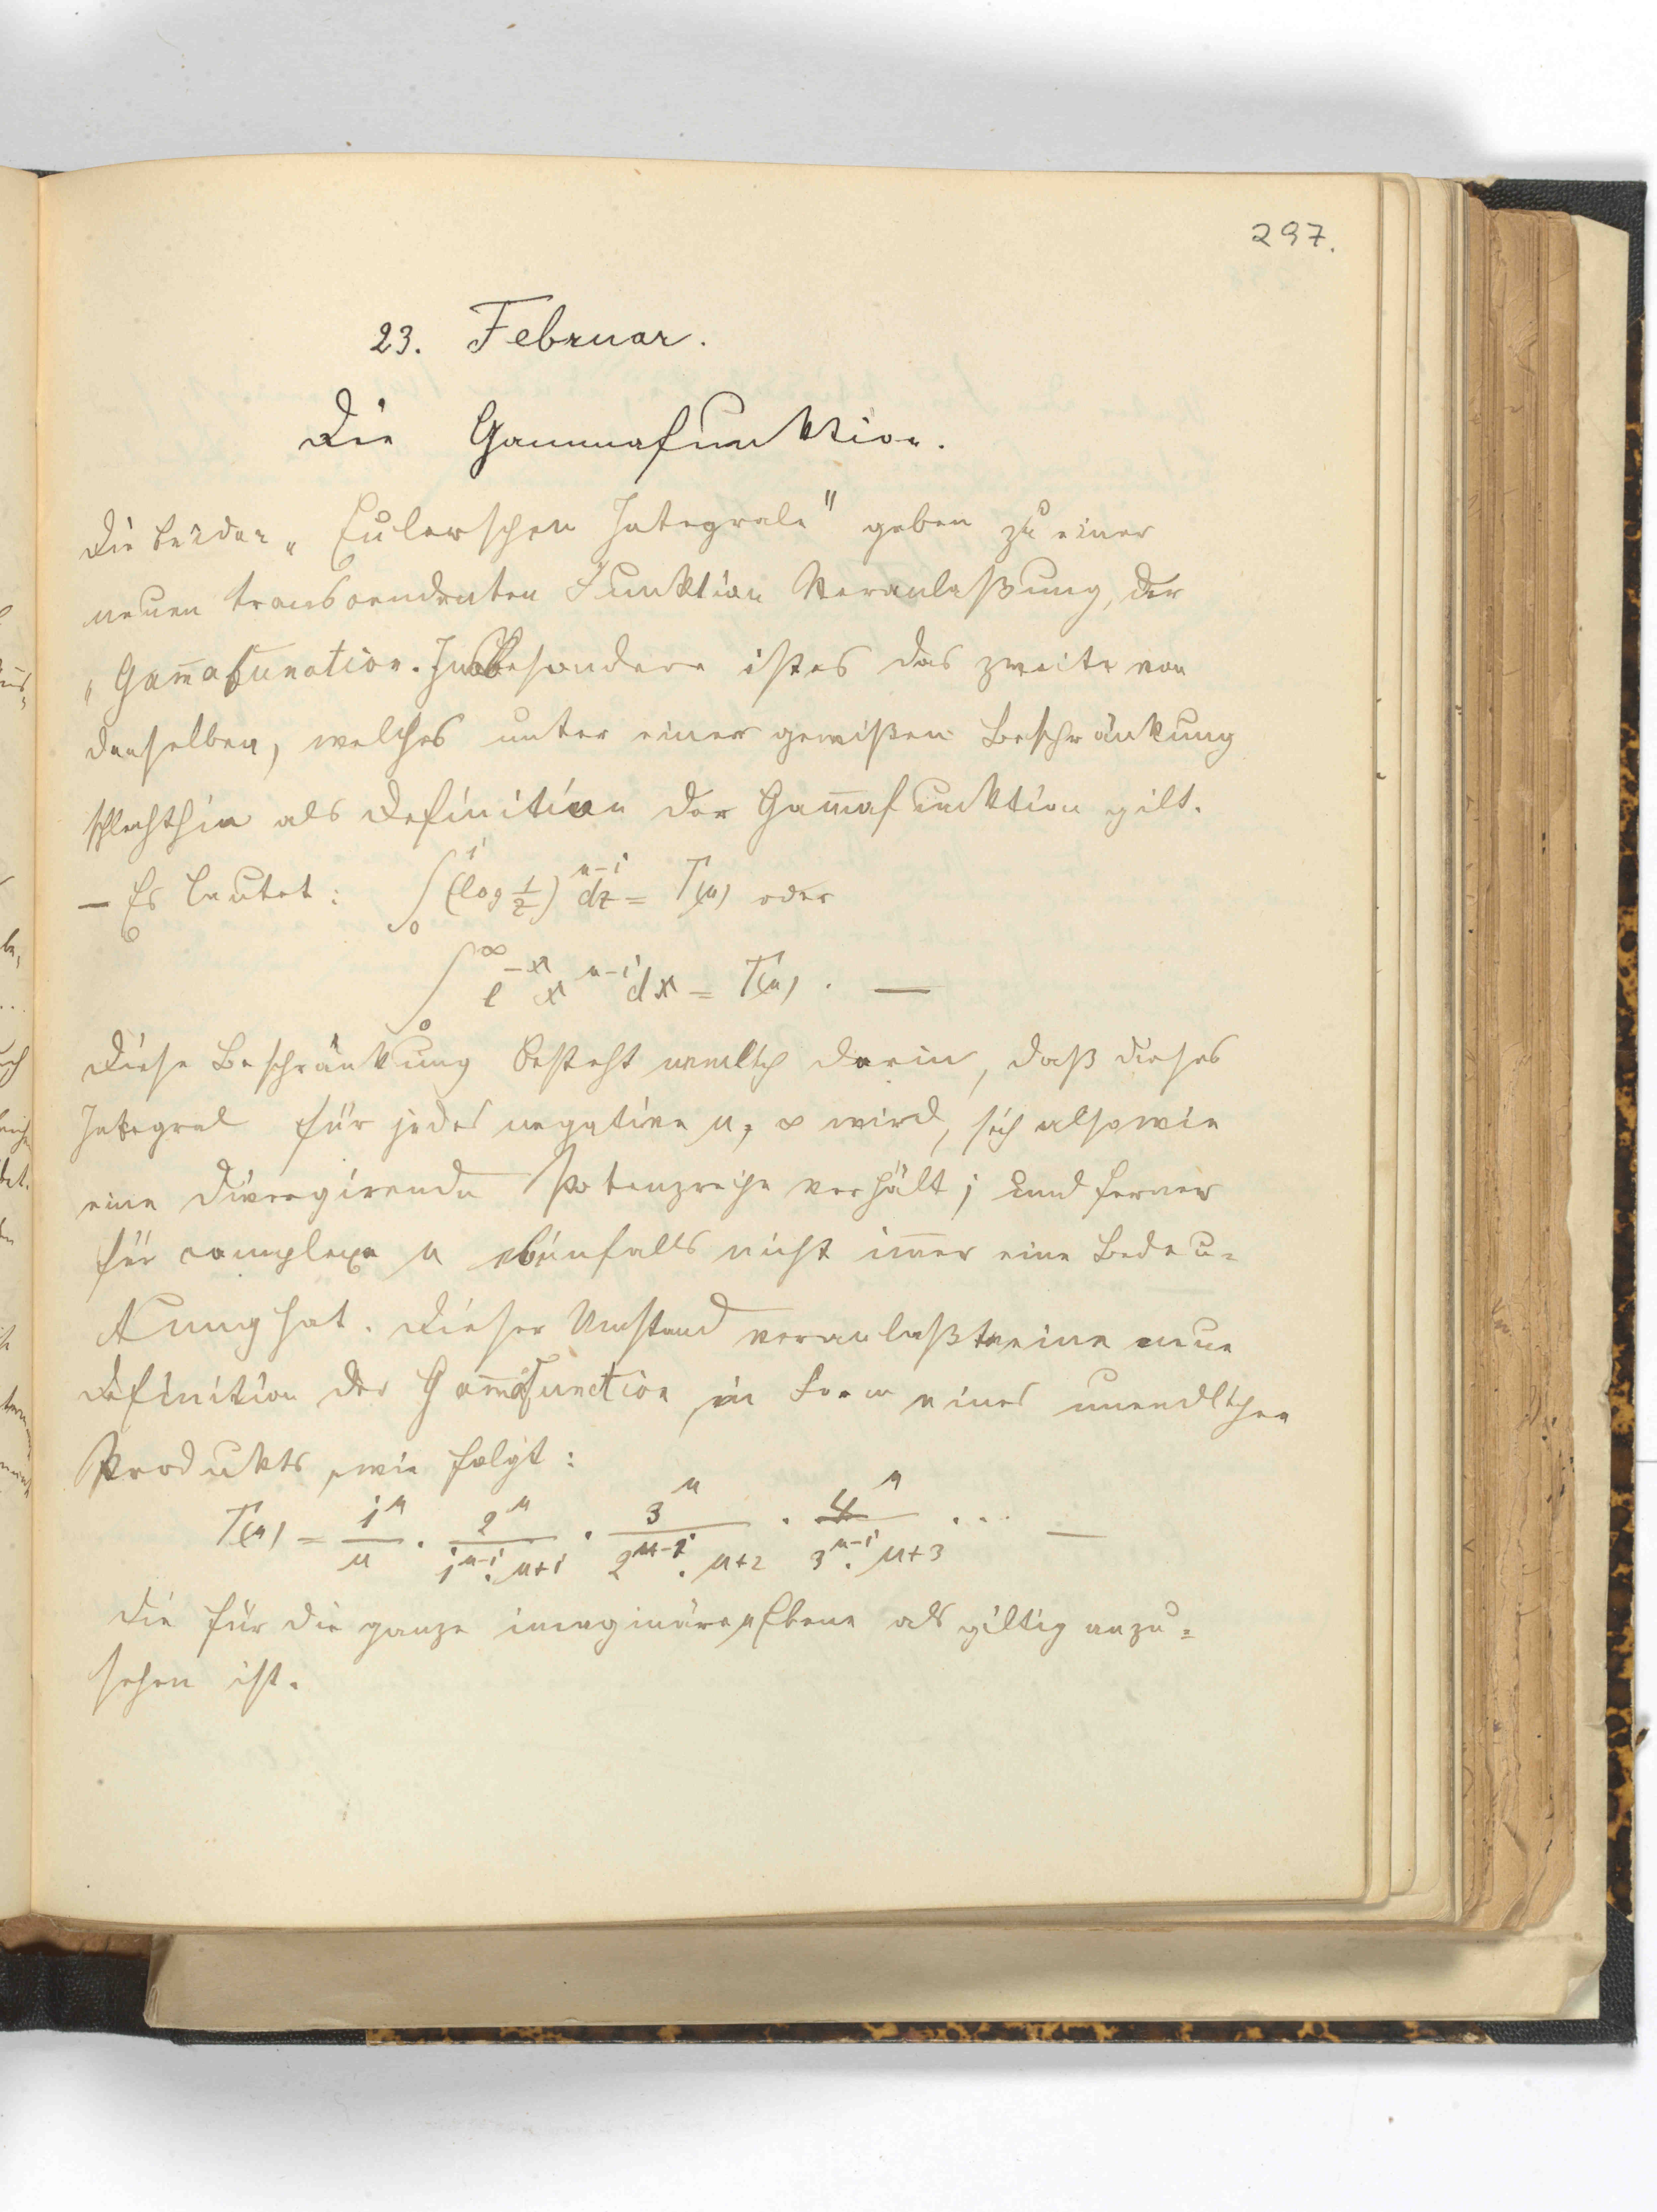 297.
23. Februar.
Die Gammafunktion.
Die beiden „Eulerschen Integrale" geben zu einer
neuen transcendenten Funktion Veranlaßung, der
„Gam̄afunction. Insbesondere ist es das zweite von
denselben, welches unter einer gewißen Beschränkung
schlechthin als Definition der Gam̄afunktion gilt.
— Es lautet: ∫₀¹ (log 1/z)ⁿ⁻¹ dz = Γ(n) oder
∫₀^∞ e⁻ˣ xⁿ⁻¹ dx = Γ(n). —
Diese Beschränkung besteht nemlich darin, daß dieses
Integral für jedes negative n, ∞ wird, sich also wie
eine divergirende Potenzreihe verhält; und ferner
für complexe n ebenfalls nicht im̄er eine Bedeu=
tung hat. Dieser Umstand veranlaßte eine neue
Definition der Gam̄afunction in Form eines unendlichen
Produkts, wie folgt:
Γ(n) = 1ⁿ/n · 2ⁿ/(1ⁿ⁻¹· n+1) · 3ⁿ/(2ⁿ⁻¹· n+2) · 4ⁿ/(3ⁿ⁻¹· n+3) · ... —
die für die ganze imaginäre Ebene als giltig anzu=
sehen ist.